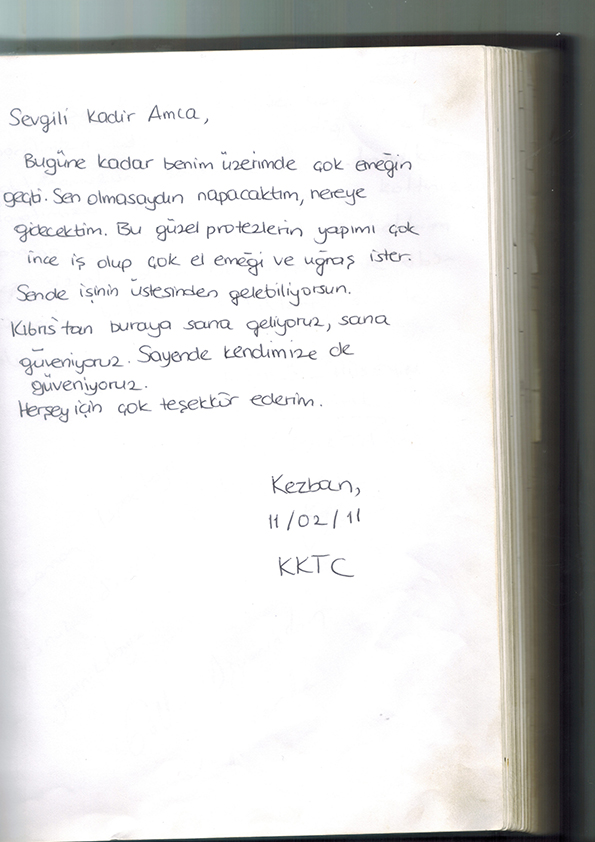 Sevgili Kadir Amca,
Bugüne kadar benim üzerimde çok emeğin
geçti. Sen olmasaydın napacaktım, nereye
gidecektim. Bu güzel protezlerin yapımı çok
ince iş olup çok el emeği ve uğraş ister.
Sende işinin üstesinden gelebiliyorsun.
Kıbrıs'tan buraya sana geliyoruz, sana
güveniyoruz. Sayende kendimize de
güveniyoruz.
Herşey için çok teşekkür ederim.
Kezban,
11/02/11
KKTC